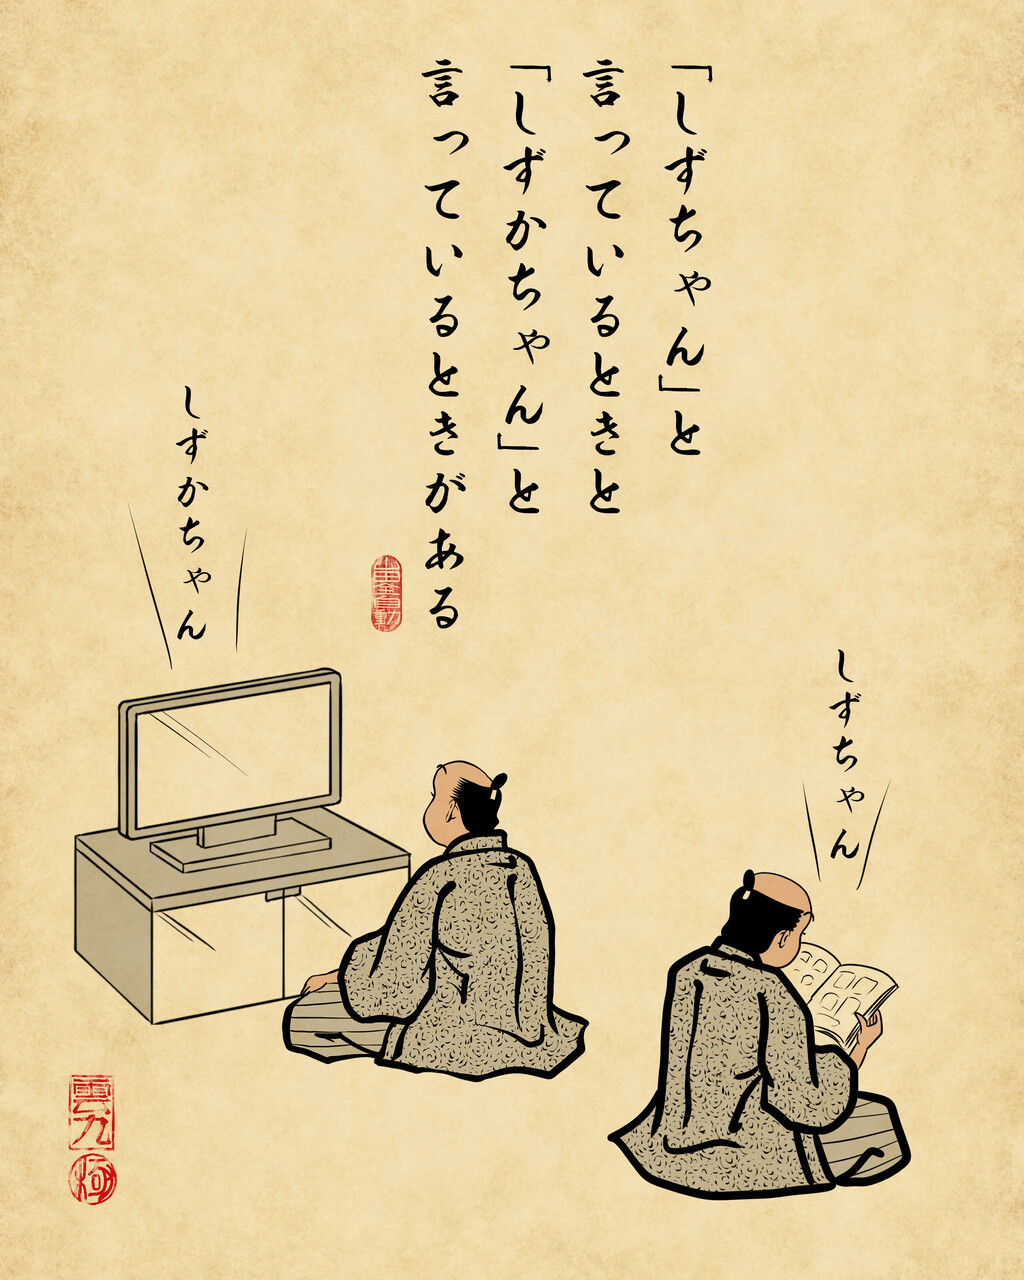 「しずちゃん」と
言っているときと
「しずかちゃん」と
言っているときがある
しずかちゃん
しずちゃん